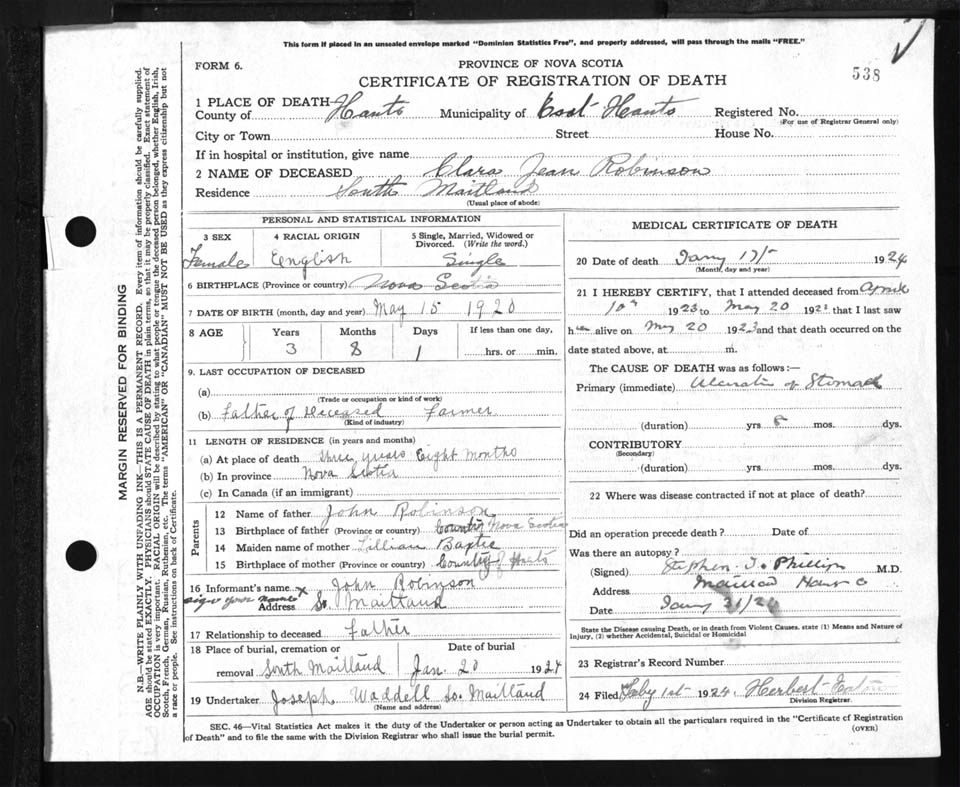 This form if placed in an unsealed envelope marked "Dominion Statistics Free", and properly addressed, will pass through the mails "FREE."
FORM 6.
PROVINCE OF NOVA SCOTIA
CERTIFICATE OF REGISTRATION OF DEATH
538
1 PLACE OF DEATH—
County of Hants Municipality of East Hants Registered No.
(For use of Registrar General only)
City or Town Street House No.
If in hospital or institution, give name
2 NAME OF DECEASED Clara Jean Robinson
Residence South Maitland
(Usual place of abode)
PERSONAL AND STATISTICAL INFORMATION
3 SEX 4 RACIAL ORIGIN 5 Single, Married, Widowed or Divorced. (Write the word.)
Female English Single
6 BIRTHPLACE (Province or country) Nova Scotia
7 DATE OF BIRTH (month, day and year) May 15 1920
8 AGE Years Months Days If less than one day,
3 8 1 hrs. or min.
9. LAST OCCUPATION OF DECEASED
(a)
(Trade or occupation or kind of work)
(b) Father of Deceased Farmer
(Kind of industry)
11 LENGTH OF RESIDENCE (in years and months)
(a) At place of death three years Eight months
(b) In province Nova Scotia
(c) In Canada (if an immigrant)
Parents
12 Name of father John Robinson
13 Birthplace of father (Province or country) Nova Scotia
14 Maiden name of mother Lillian
15 Birthplace of mother (Province or country) County of Hants
16 Informant's name x John Robinson
sign your name
Address So. Maitland
17 Relationship to deceased Father
18 Place of burial, cremation or Date of burial
removal South Maitland Jan. 20 1924
19 Undertaker Joseph Waddell So. Maitland
(Name and address)
MEDICAL CERTIFICATE OF DEATH
20 Date of death Jany 1924
(Month, day and year)
21 I HEREBY CERTIFY, that I attended deceased from April
10th 1923 to May 20 1923 that I last saw
h alive on May 20 1923 and that death occurred on the
date stated above, at m.
The CAUSE OF DEATH was as follows:—
Primary (immediate) of Stomach
(duration) yrs 8 mos. dys.
CONTRIBUTORY
(Secondary)
(duration) yrs. mos. dys.
22 Where was disease contracted if not at place of death?
Did an operation precede death? Date of
Was there an autopsy?
(Signed) Stephen Phillips M.D.
Address
Date Jany 31/24
State the Disease causing Death, or in death from Violent Causes, state (1) Means and Nature of
Injury, (2) whether Accidental, Suicidal or Homicidal
23 Registrar's Record Number
24 Filed 1st 1924. Herbert Eaton
Division Registrar.
SEC. 46—Vital Statistics Act makes it the duty of the Undertaker or person acting as Undertaker to obtain all the particulars required in the "Certificate of Registration
of Death" and to file the same with the Division Registrar who shall issue the burial permit.
(OVER)
MARGIN RESERVED FOR BINDING
N.B.—WRITE PLAINLY WITH UNFADING INK—THIS IS A PERMANENT RECORD. Every item of information should be carefully supplied.
AGE should be stated EXACTLY. PHYSICIANS should STATE CAUSE OF DEATH in plain terms, so that it may be properly classified. Exact statement of
OCCUPATION is very important. RACIAL ORIGIN will be described by stating to what people or tongue the deceased person belonged, whether English, Irish,
Scotch, French, German, Russian, Ruthenian, etc. The terms "AMERICAN" OR "CANADIAN" MUST NOT BE USED as they express citizenship but not
a race or people. See instructions on back of Certificate.